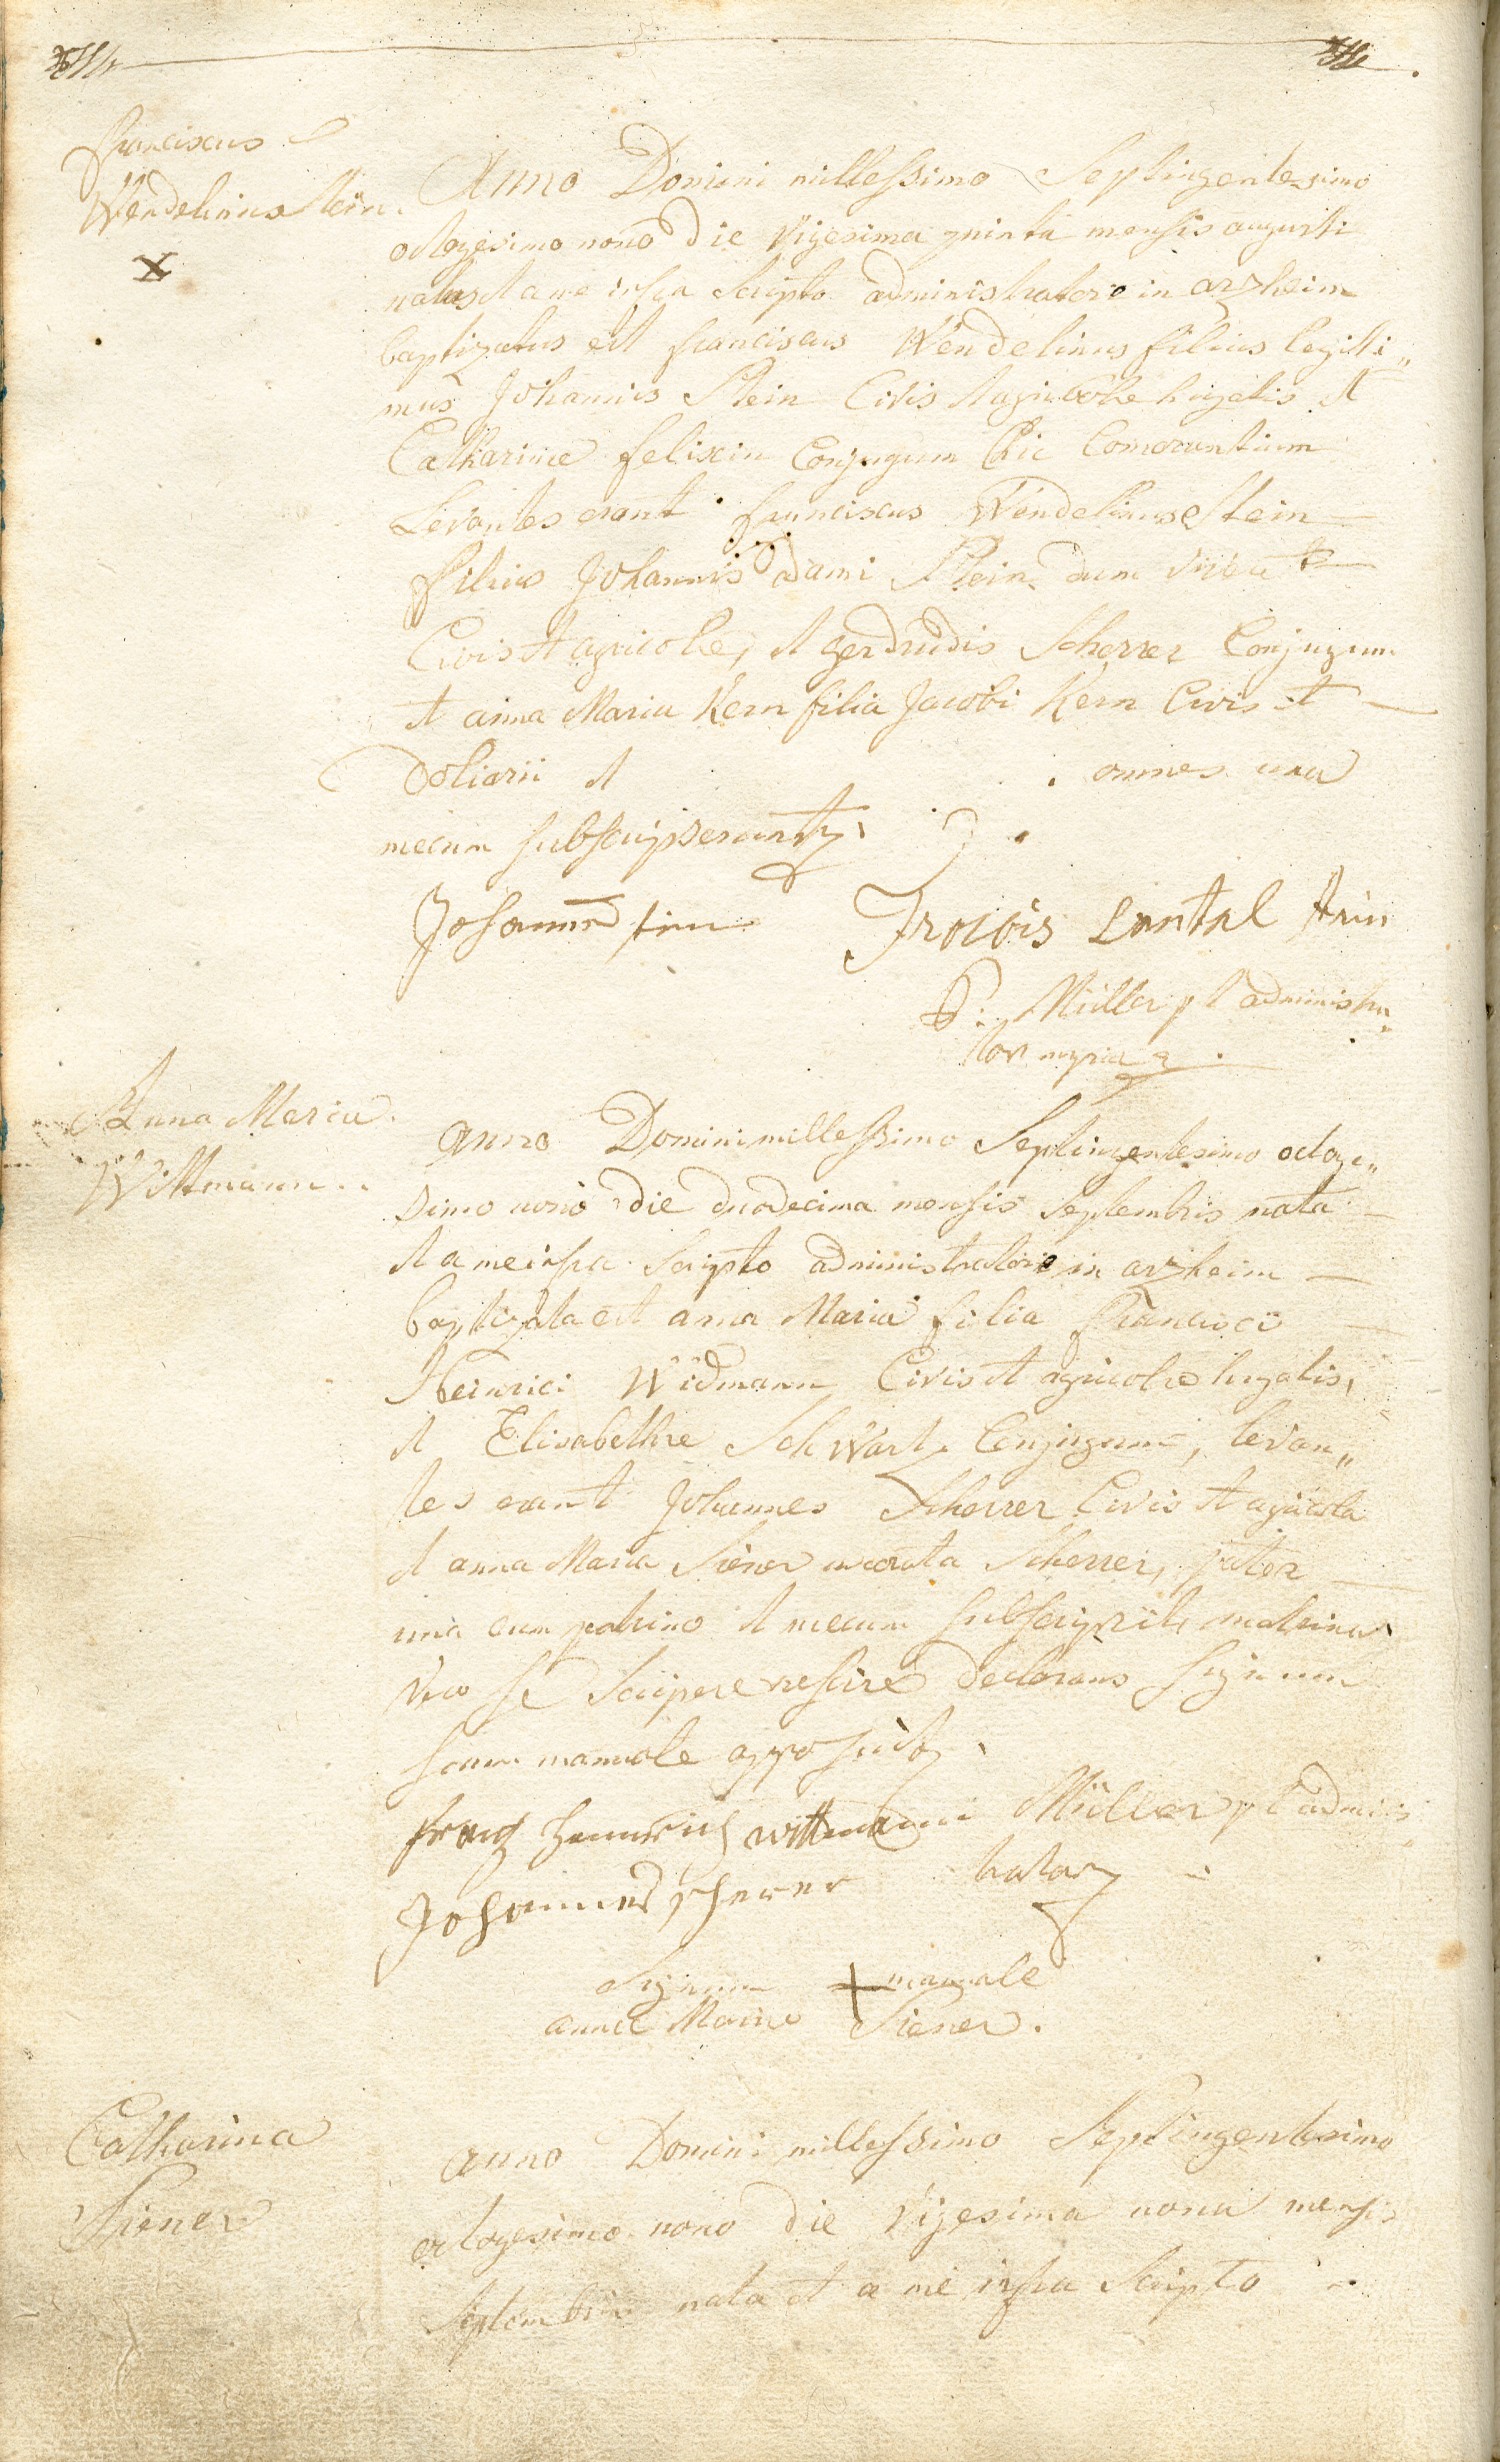 Franciscus
Wendelinus Stein.
X
Anno Domini millessimo Septingentesimo
octogesimo nono die vigesima quinta mensis augusti
natus et a me infra scripto administratore in arzheim
baptizatus est franciscus Wendelinus filius legitti„
mus Johannis Stein Civis et agricolae hujatis et
Catharinae felixin Conjugum hic Comorantium
Levantes erant franciscus Wendelinus Stein
filius Johannis adami Stein dum viveat
Civis et agricolae, et gerdrudis Scherrer Conjugum
et anna Maria Kern filia Jacobi Kern Civis et
doliarii et . omnes una
mecum subscripserunt
Johannes stein Frocois Lantal stein
P: Müller pt administra„
tor mpria
Anna Maria
Wittmann..
anno Domini millessimo Septingentesimo octoge„
simo nono die duodecima mensis Septembris nata
et a me infra Scripto administratore in arzheim
baptizata est anna Maria filia Francisci
Heinrici Widmann Civis et agricolae hujatis,
et Elisabethae Schwartz Conjugum, levan„
tes erant Johannes Scherrer Civis et agricola
et anna Maria Siener uxorata Scherrer, pater
una cum patrino et mecum subscripsit, matrina
vero se Scripere nescire declarans signum
suum manuale apposuit
frantz hennrich wittmann Müller pt adminis„
Johannes scherer trator
Signum + manuale
annae Mariae Siener.
Catharina
Siener
anno Domini millessimo Septingentesimo
octogesimo nono die vigesima nona mensis
Septembris nata et a me infra Scripto